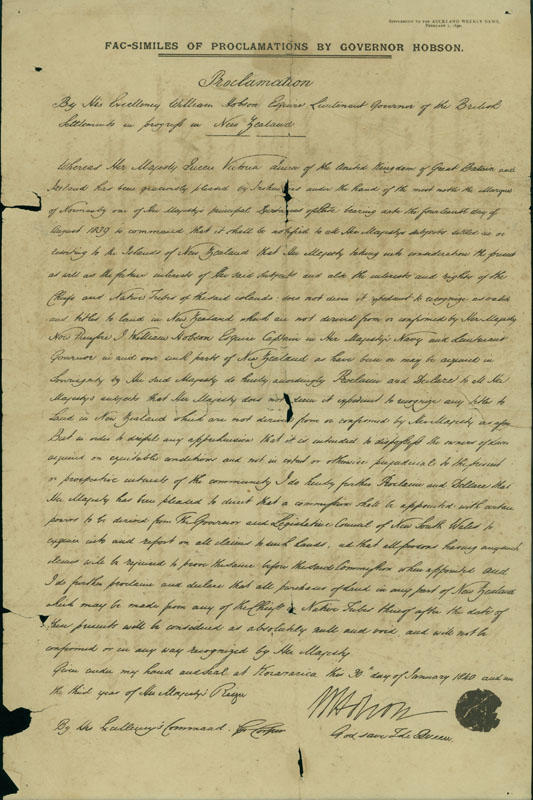 SUPPLEMENT TO THE AUCKLAND WEEKLY NEWS,
FAC-SIMILES OF PROCLAMATIONS BY GOVERNOR HOBSON.
Proclamation
By His Excellency William Hobson Esquire Lieutenant Governor of the British
Settlements in progress in New Zealand
Whereas Her Majesty Queen Victoria Queen of the United Kingdom of Great Britain and
Ireland has been graciously pleased by Instructions under the hand of the most noble the Marquis
of Normanby one of Her Majestys principal Secretaries of State bearing date the fourteenth day of
August 1839 to command that it shall be notified to all Her Majestys subjects settled in or
resorting to the Islands of New Zealand that Her Majesty taking into consideration the present
as well as the future interests of the said subjects and also the interests and rights of the
Chiefs and Native Tribes of the said islands does not deem it expedient to recognize as valid
any titles to land in New Zealand which are not derived from or confirmed by Her Majesty
Now Therefore I William Hobson Esquire Captain in Her Majestys Navy and Lieutenant
Governor in and over such parts of New Zealand as have been or may be acquired in
Sovereignty by Her said Majesty do hereby accordingly Proclaim and Declare to all Her
Majestys subjects that Her Majesty does not deem it expedient to recognize any titles to
Land in New Zealand which are not derived from or confirmed by Her Majesty
But in order to dispel any apprehension that it is intended to dispossess the owners of Land
acquired on equitable conditions and not in extent or otherwise prejudicial to the present
or prospective interests of the community I do hereby further Proclaim and Declare that
Her Majesty has been pleased to direct that a commission shall be appointed with certain
powers to be derived from The Governor and Legislative Council of New South Wales to
enquire into and report on all claims to such Lands, and that all persons having any such
claims will be required to prove the same before the said Commission when appointed And
I do further proclaim and declare that all purchases of land in any part of New Zealand
which may be made from any of the Chiefs or Native Tribes thereof after the date of
these presents will be considered as absolutely null and void and will not be
confirmed or in any way recognized by Her Majesty
Given under my hand and seal at Kororarica this 30th day of January 1840 and in
the third year of Her Majesty's Reign
W Hobson
By His Excellency's Command.
God save The Queen.